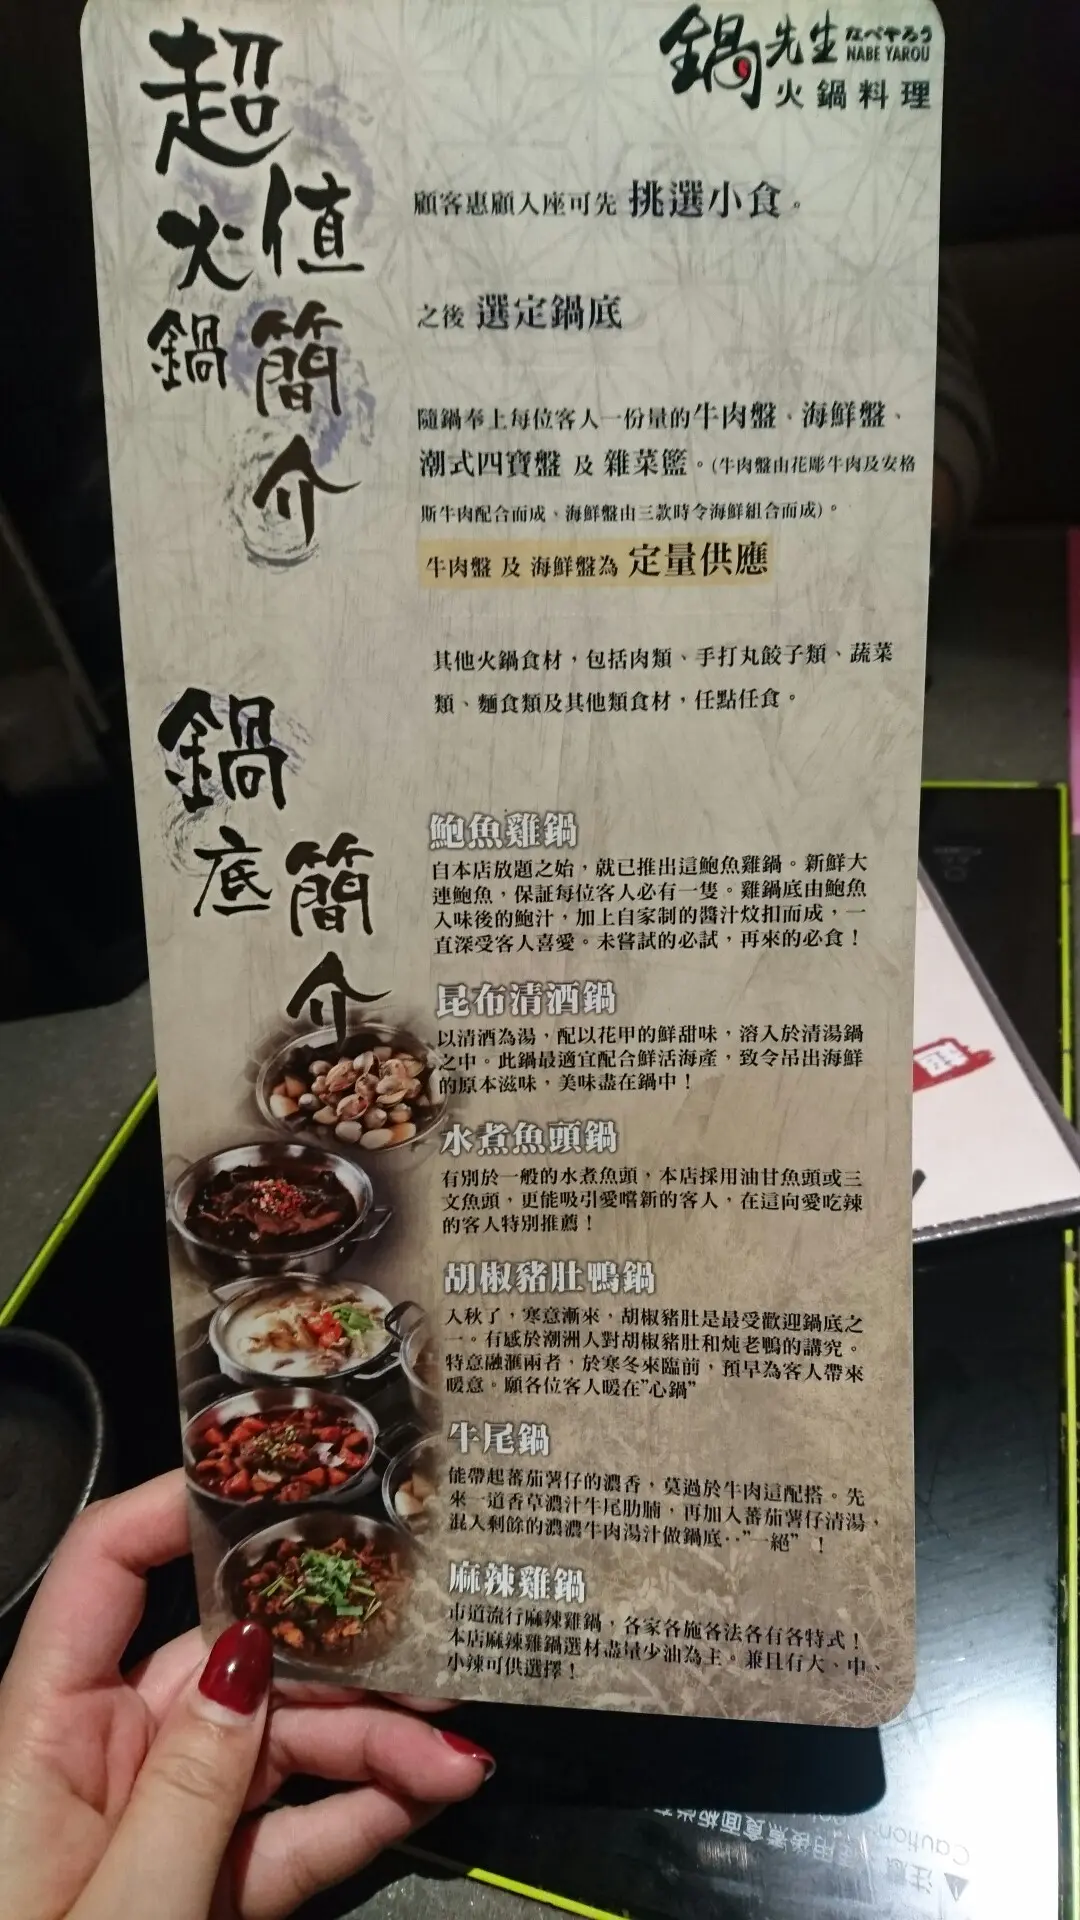 鍋先生 なべやろう
NABE YAROU
火鍋料理
超值火鍋簡介
顧客惠顧入座可先 挑選小食。
之後 選定鍋底
隨鍋奉上每位客人一份量的牛肉盤、海鮮盤、
潮式四寶盤 及 雜菜籃。(牛肉盤由花彫牛肉及安格
斯牛肉配合而成、海鮮盤由三款時令海鮮組合而成)。
牛肉盤 及 海鮮盤為 定量供應
其他火鍋食材，包括肉類、手打丸餃子類、蔬菜
類、麵食類及其他類食材，任點任食。
鍋底簡介
鮑魚雞鍋
自本店放題之始，就已推出這鮑魚雞鍋。新鮮大
連鮑魚，保証每位客人必有一隻。雞鍋底由鮑魚
入味後的鮑汁，加上自家制的醬汁炆扣而成，一
直深受客人喜愛。未嘗試的必試，再來的必食！
昆布清酒鍋
以清酒為湯，配以花甲的鮮甜味，溶入於清湯鍋
之中。此鍋最適宜配合鮮活海產，致令吊出海鮮
的原本滋味，美味盡在鍋中！
水煮魚頭鍋
有別於一般的水煮魚頭，本店採用油甘魚頭或三
文魚頭，更能吸引愛嚐新的客人，在這向愛吃辣
的客人特別推薦！
胡椒豬肚鴨鍋
入秋了，寒意漸來，胡椒豬肚是最受歡迎鍋底之
一。有感於潮洲人對胡椒豬肚和炖老鴨的講究。
特意融滙兩者，於寒冬來臨前，預早為客人帶來
暖意。願各位客人暖在"心鍋"
牛尾鍋
能帶起蕃茄薯仔的濃香，莫過於牛肉這配搭。先
來一道香草濃汁牛尾肋腩，再加入蕃茄薯仔清湯，
混入剩餘的濃濃牛肉湯汁做鍋底‥"一絕"！
麻辣雞鍋
市道流行麻辣雞鍋，各家各施各法各有各特式！
本店麻辣雞鍋選材盡量少油為主。兼且有大、中、
小辣可供選擇！
注意
Caution